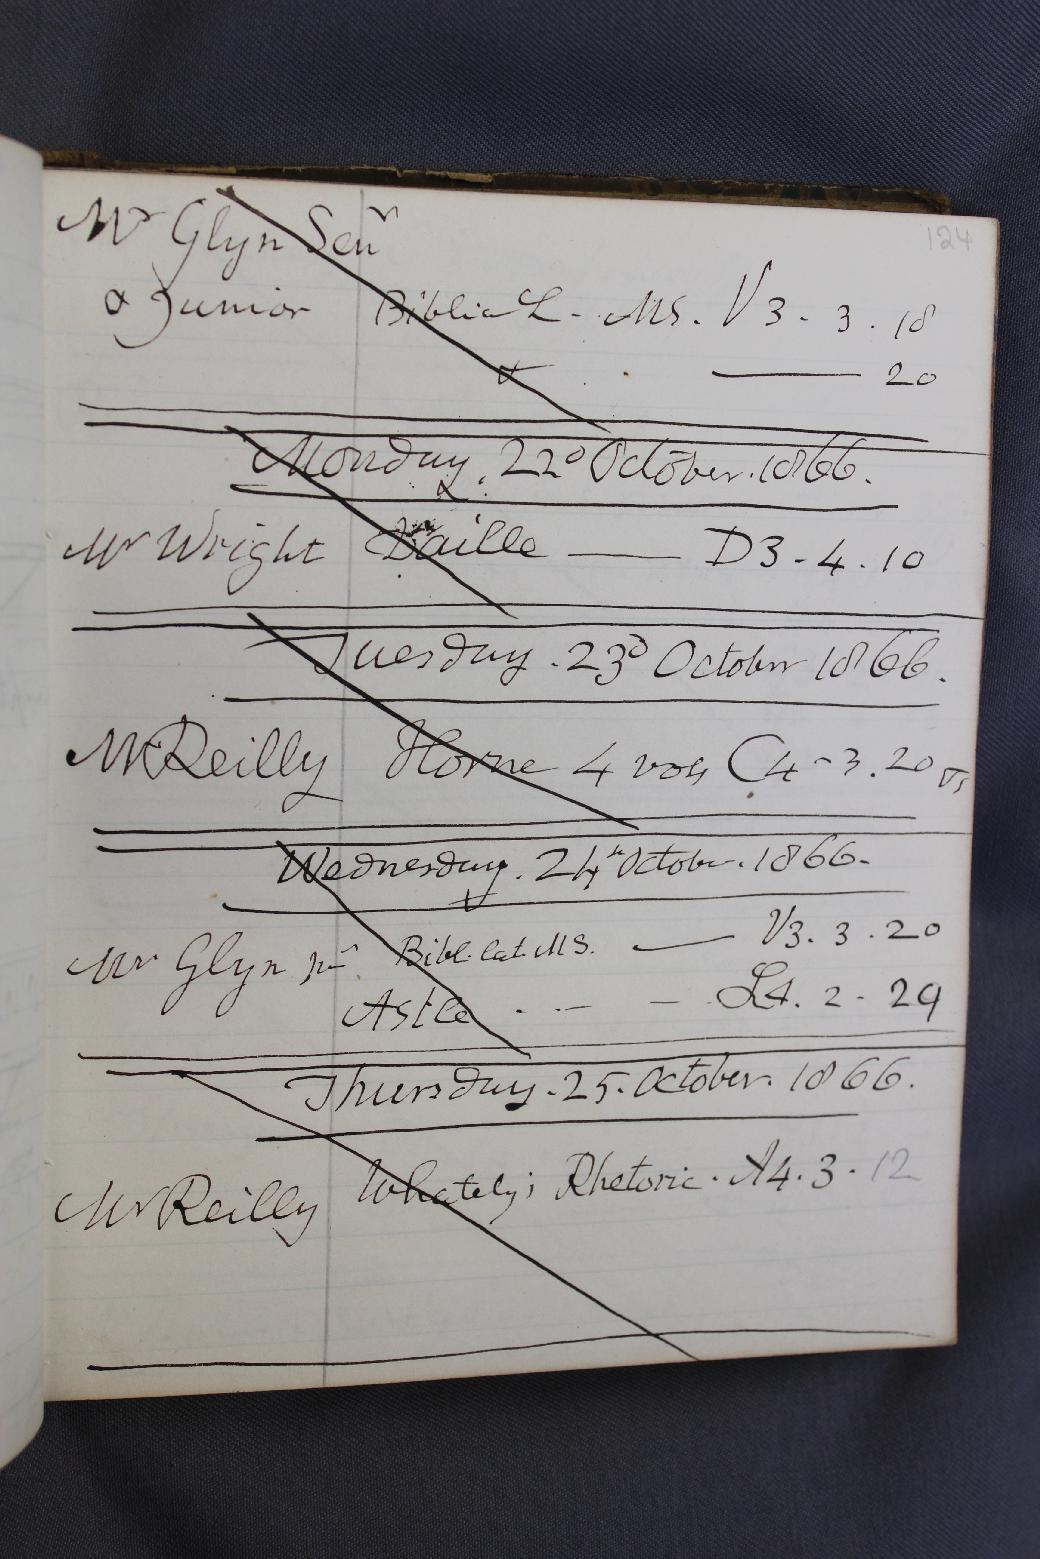 124
Mr Glyn Senr
& Junior Biblia L. MS. V3. 3. 18
& —— 20
Monday. 22d October. 1866.
Mr Wright Daille —— D3. 4. 10
Tuesday. 23d October 1866.
Mr Reilly Horne 4 vols C4-3. 20
Wednesday. 24th October. 1866.
Mr Glyn jnr. Bibl. Lat. MS. —— V3. 3. 20
Astle . — — L4. 2. 29
Thursday. 25. October. 1866.
Mr Reilly Whately's Rhetoric. A4. 3. 12